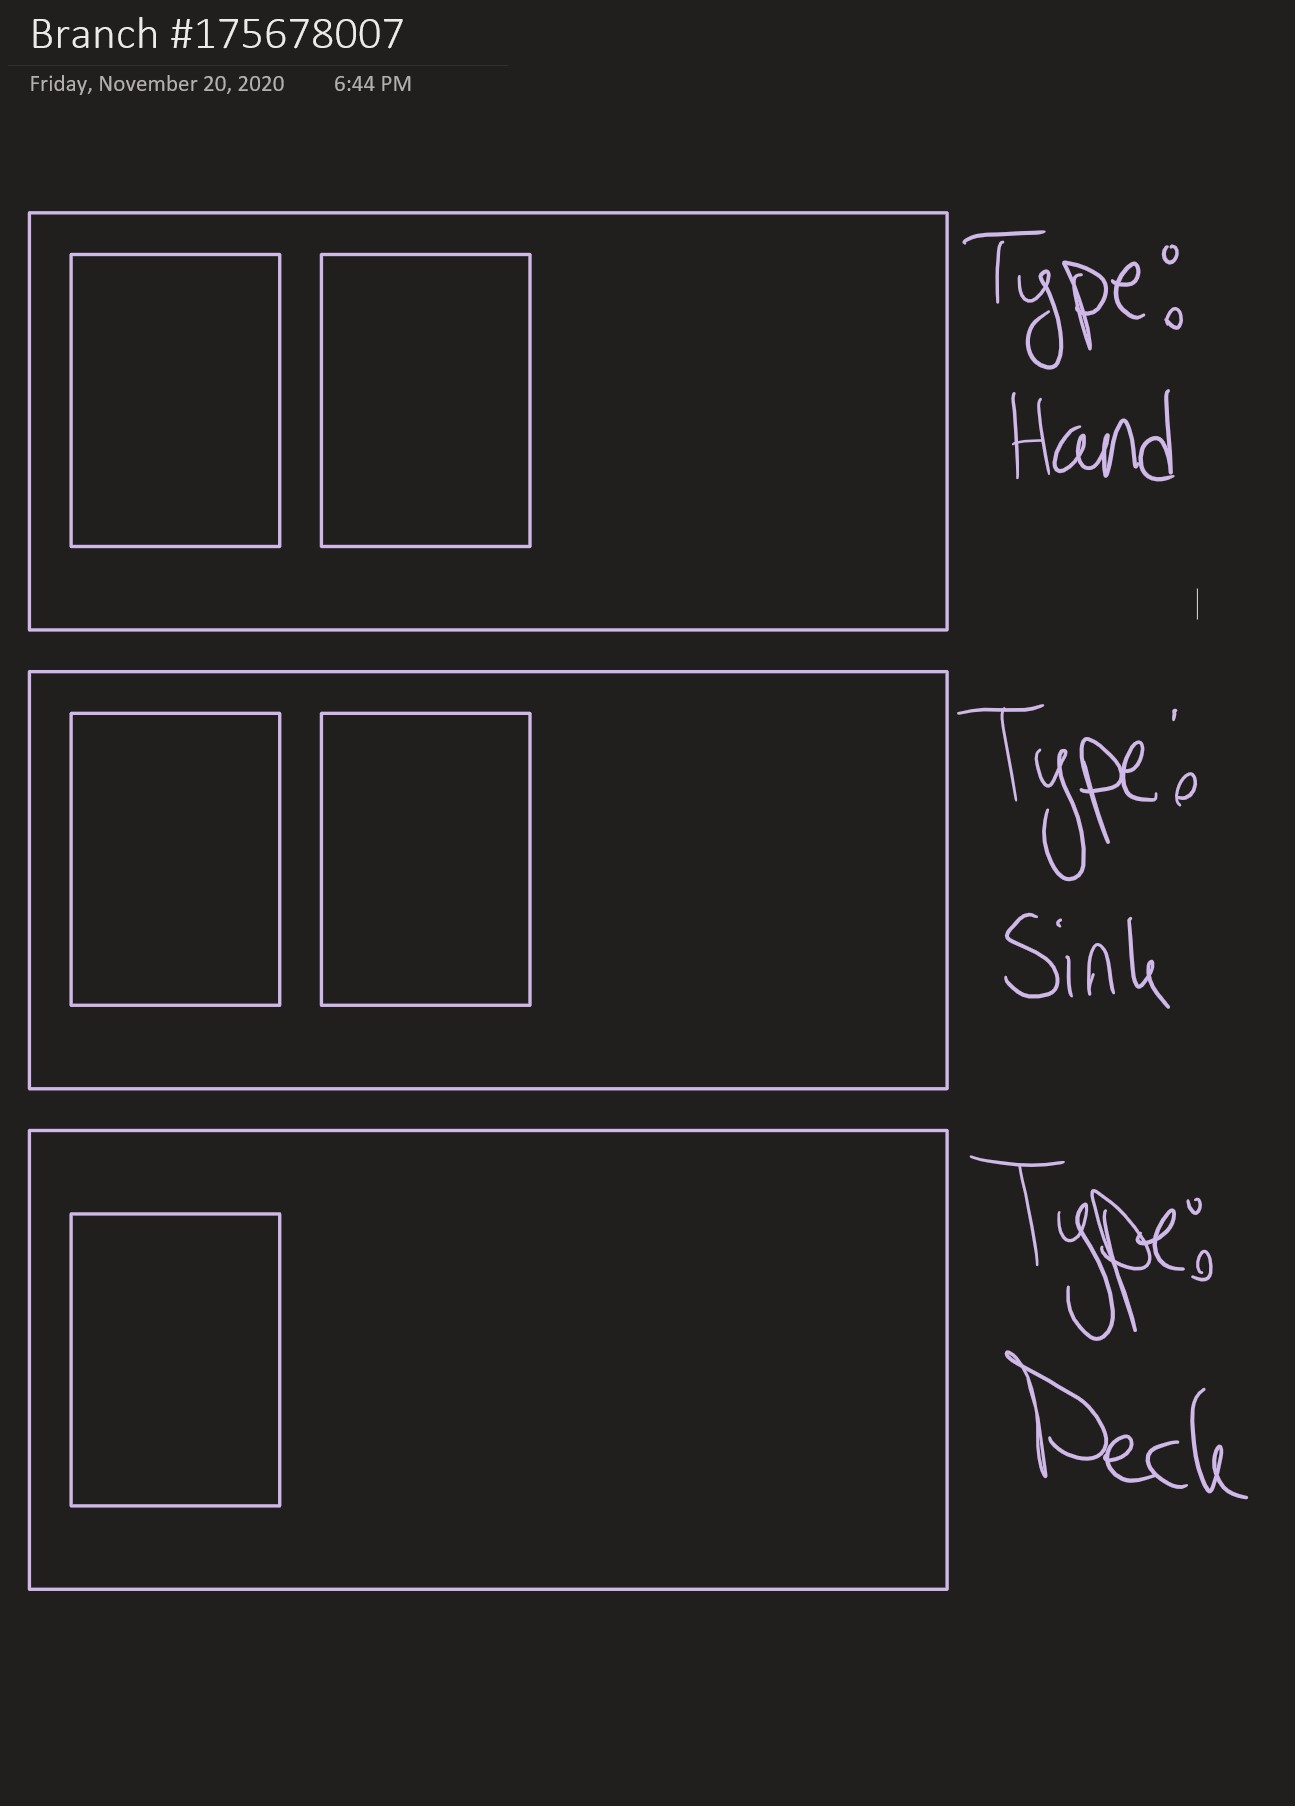 Branch #175678007
Friday, November 20, 2020 6:44 PM
Type:
Hand
Type:
Sink
Type:
Deck